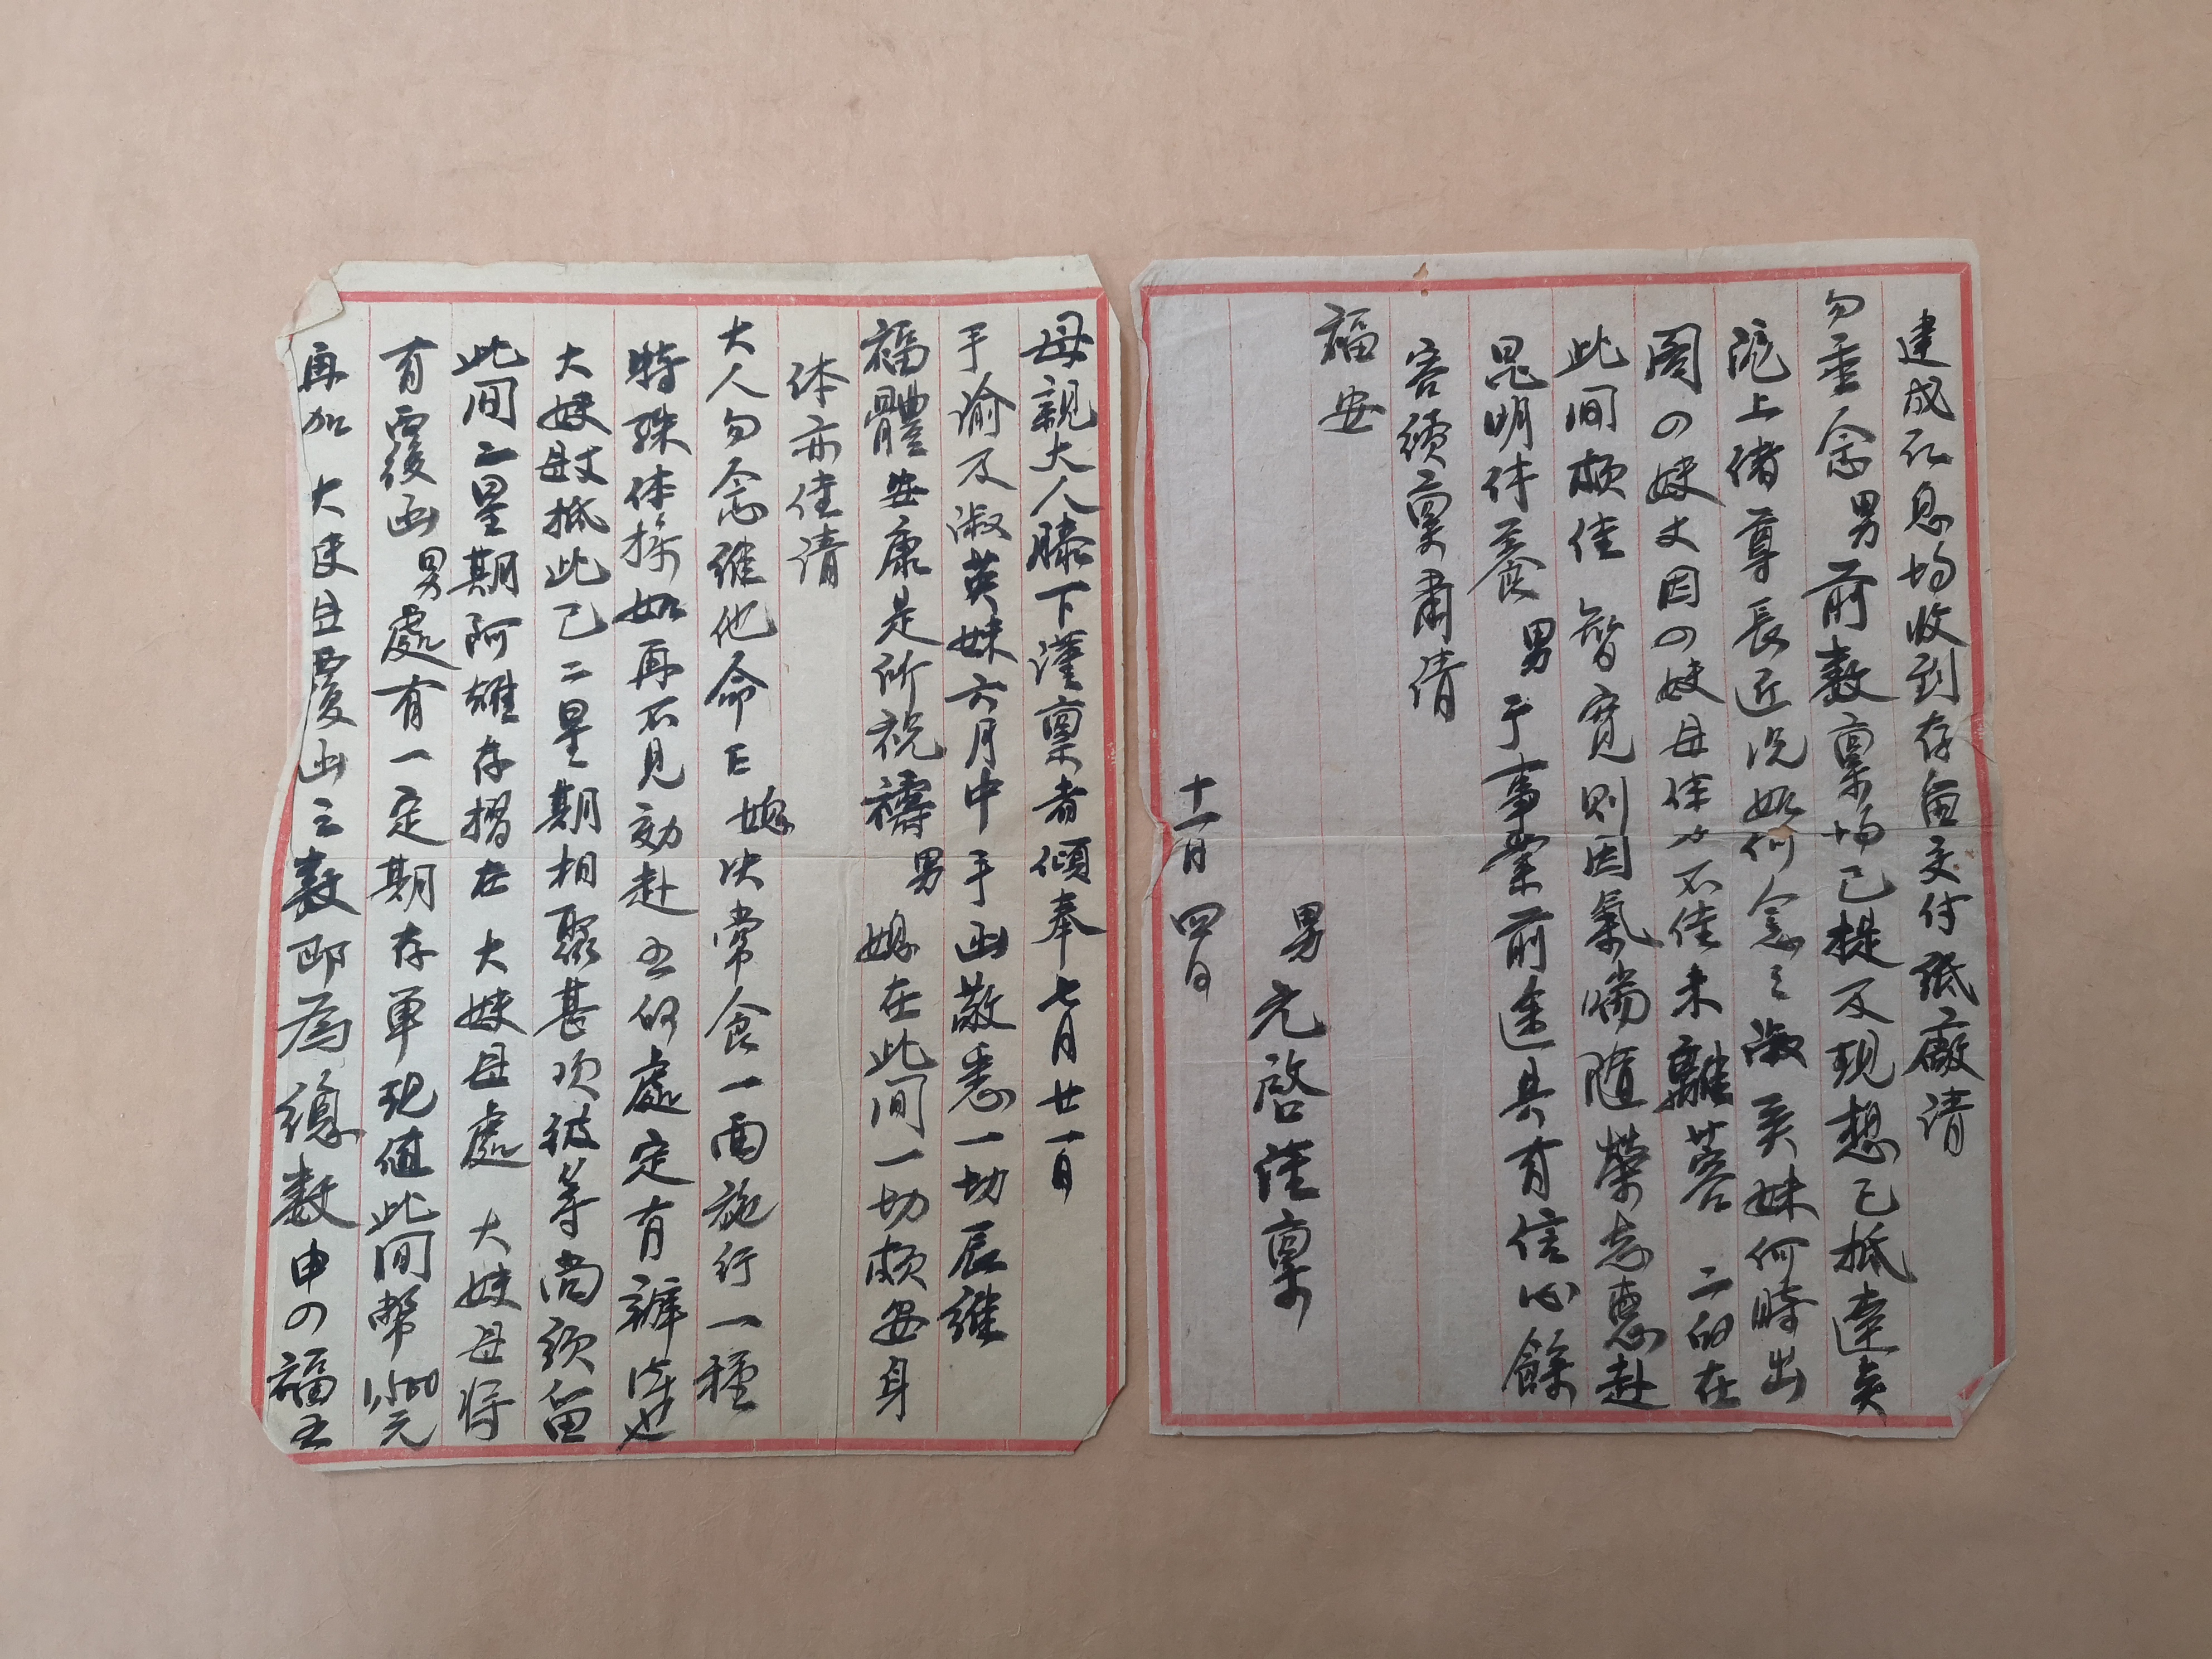 母親大人膝下謹稟者傾奉七月廿一日
手諭及淑英妹六月中手函敬悉一切辰維
福體安康是所祝禱男媳在此间一切頗安身
体亦佳请
大人勿念維他命E媳决常食一面施行一種
特殊体操如再不見効赴五的處定有辦法也
大妹母抵此已二星期相聚甚欢彼等尚须留
此间二星期阿雄存摺在大妹母處大妹母将
有覆函男處有一定期存單现值此间幣1,500元
再加大 母覆函之数即為總数申の福五
建成 息均收到存留交付纸廠请
勿垂念男前数稟均已提及现想已抵達矣
沪上诸尊長近况如何念之淑英妹何時出
阁の妹丈因の妹母体力不佳未離蓉二的在
此间頗佳智寬则因氣喘随荣志惠赴
昆明休養男于事業前途具有信心餘
容續稟肃请
福安
男元啓谨稟
十一月四日